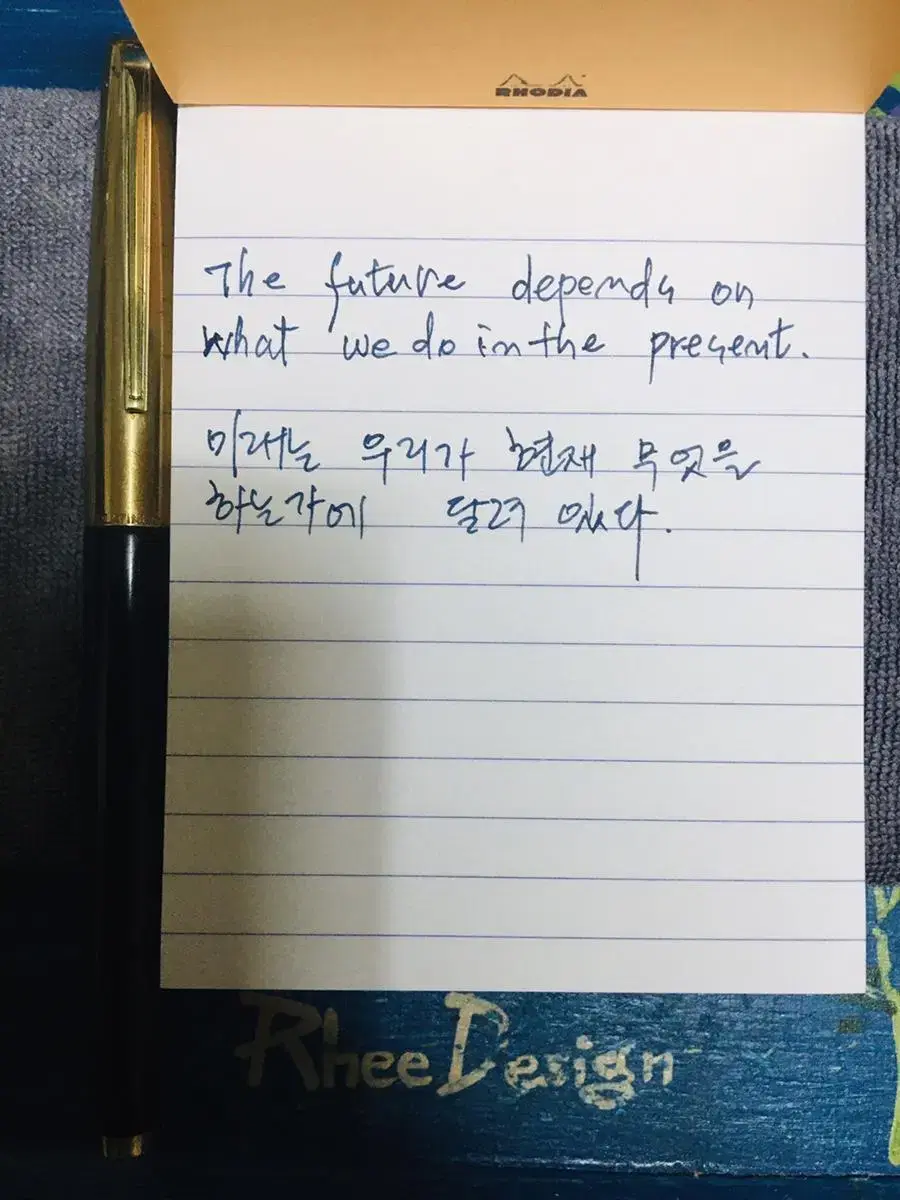 RHODIA
The future depends on
what we do in the present.
미래는 우리가 현재 무엇을
하는가에 달려 있다.
Rhee Design